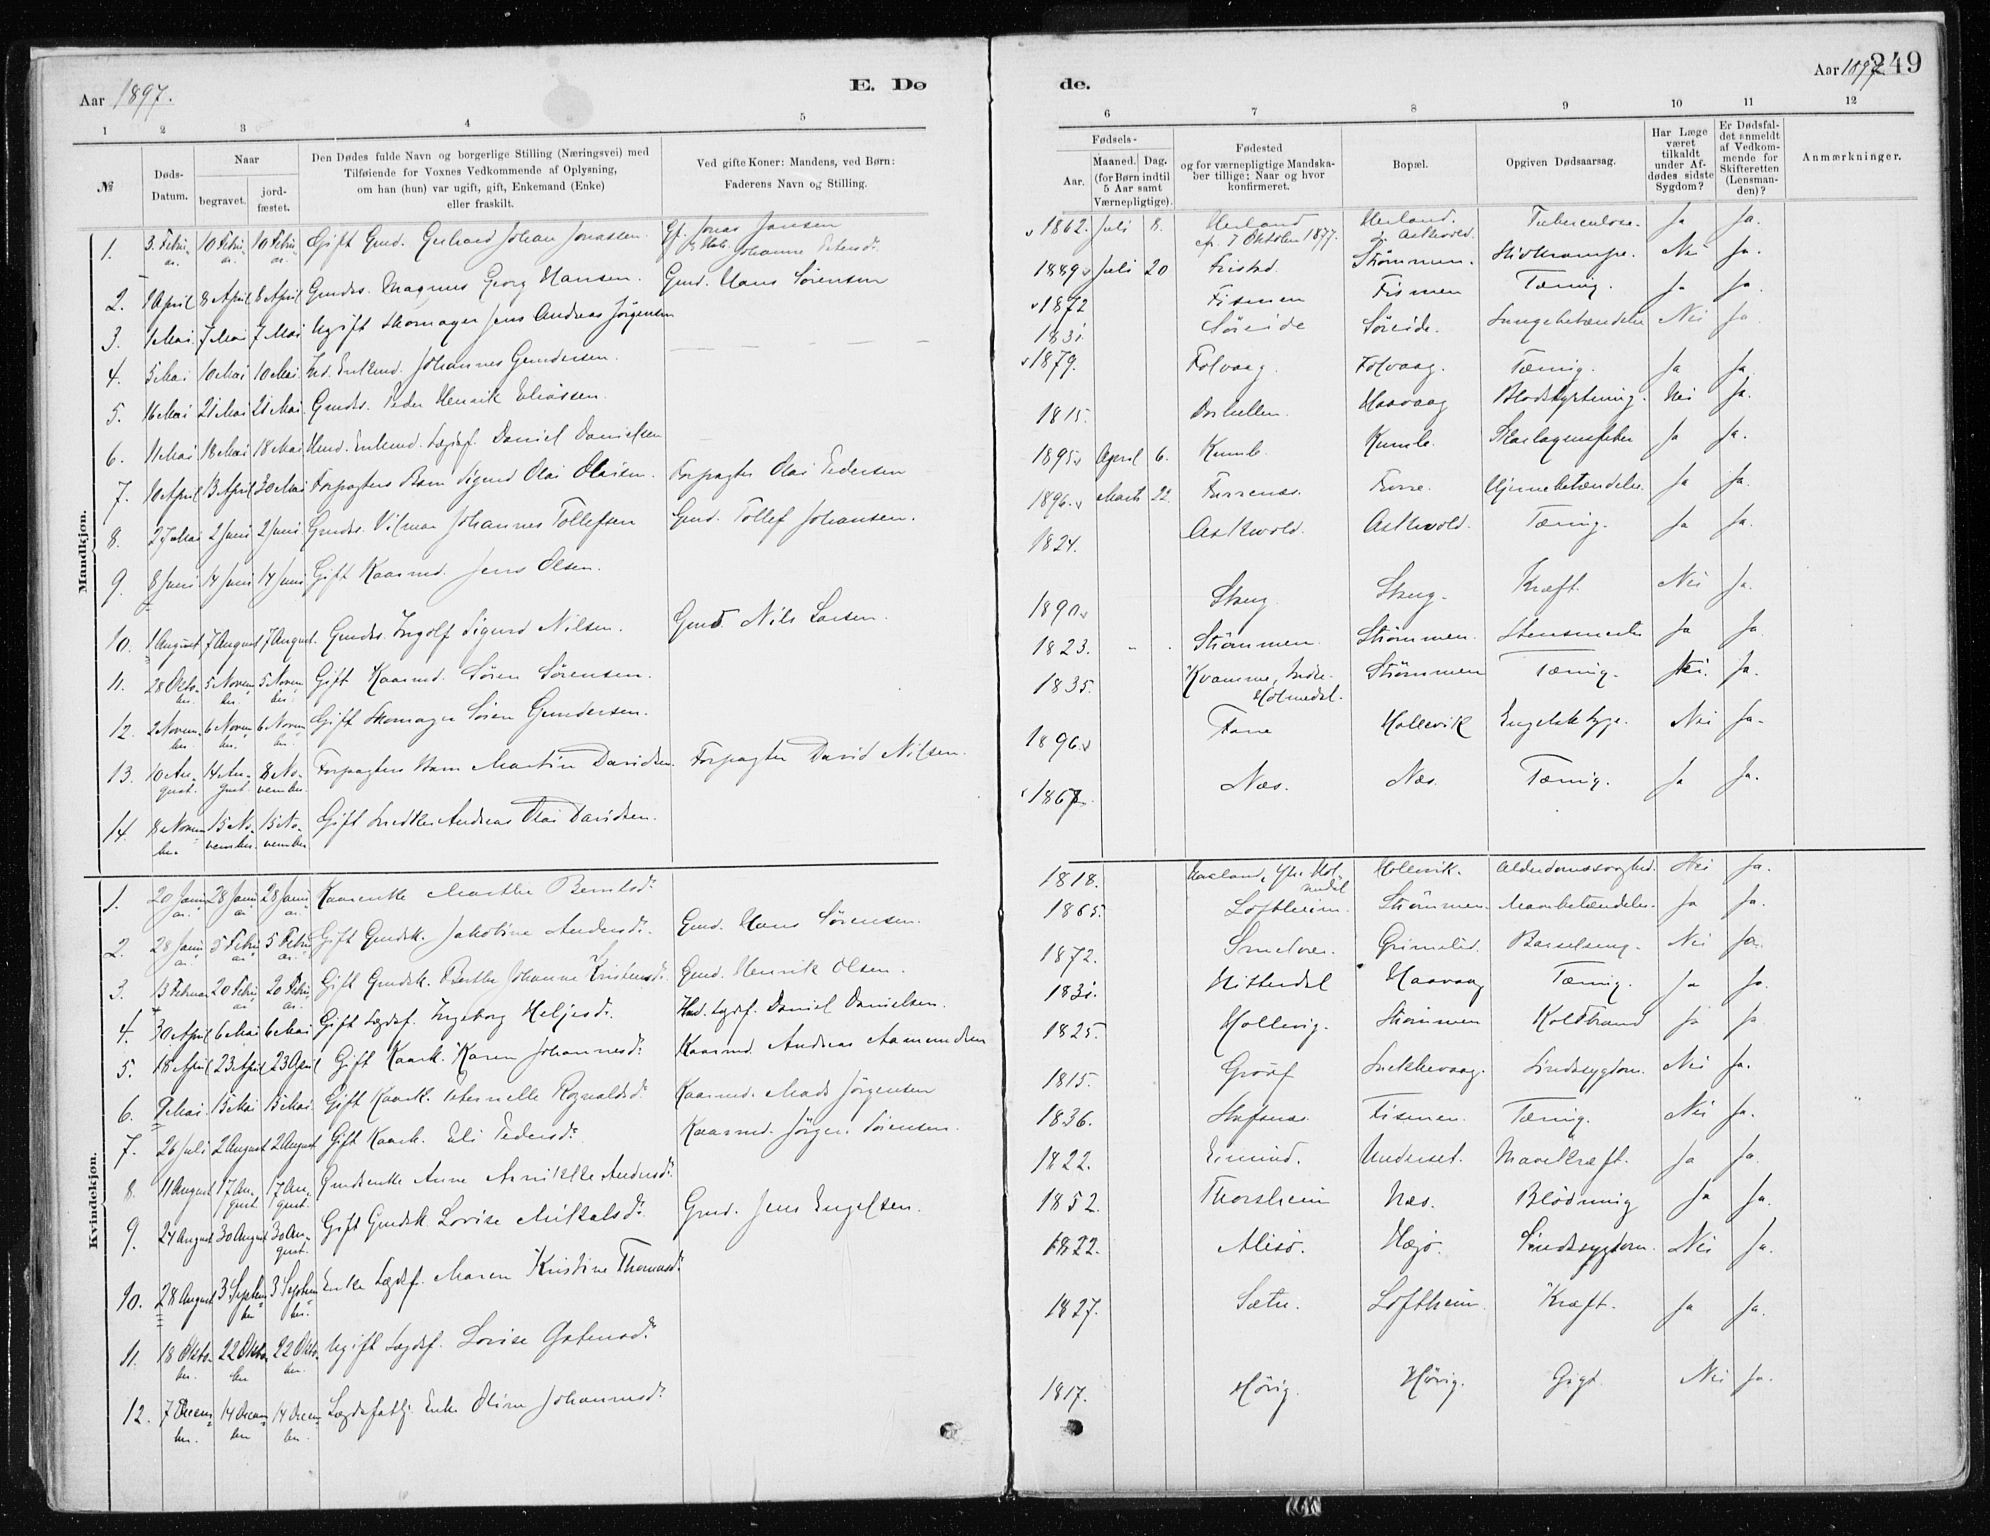 Aar 1897.
E. Dø
de.
Aar 1897.
249
1 2 3 4 5
6 7 8 9 10 11 12
№
Døds-
Datum.
Naar
begravet.
jord-
fæstet.
Den Dødes fulde Navn og borgerlige Stilling (Næringsvei) med
Tilføiende for Voxnes Vedkommende af Oplysning,
om han (hun) var ugift, gift, Enkemand (Enke)
eller fraskilt.
Ved gifte Koner: Mandens, ved Børn:
Faderens Navn og Stilling.
Fødsels-
Aar.
Maaned. Dag.
(for Børn indtil
5 Aar samt
Værnepligtige).
Fødested
og for værnepligtige Mandska-
ber tillige: Naar og hvor
konfirmeret.
Bopæl.
Opgiven Dødsaarsag.
Har Læge
været
tilkaldt
under Af-
dødes sidste
Sygdom?
Er Dødsfal-
det anmeldt
af Vedkom-
mende for
Skifteretten
(Lensman-
den)?
Anmærkninger.
Mandkjøn.
1. 3. Febru- 10 Febru- 10 Febru- Gift Gmd. Gerhard Johan Jonassen. Jonas Jansen 1862. Juli 8. Herland Herland. Tuberculose. Ja Ja.
ar. ar. ar. Johanne Petersdr. 7 Oktober 1877. Askvold.
2. 1 April 8 April 8 April Gmds. Magnus Georg Hansen. Gmd. Hans Sørensen 1889 Juli 20 Strømmen. Nei Ja.
3. 1 Mai 7 Mai 7 Mai Ugift Skomager Jens Andreas Jørgensen 1872 Fismen Fismen Tæring. Ja Ja.
4. 5 Mai 10 Mai 10 Mai Enkemd. Johannes Gundersen. 1831 Søreide Søreide. Lungebetændelse Nei Ja
5. 16 Mai 21 Mai 21 Mai Gmds. Peder Henrik Eliassen. 1879. Folvaag. Folvaag. Tæring. Ja Ja.
6. 11 Mai 18 Mai 18 Mai Enkemd. Lægdsf. Daniel Danielsen 1815. Haavaag Blodstyrtning. Nei Ja.
7. 10 April 13 April 30 Mai Forpagters Barn Sigurd Olai Olaisen. Forpagter Olai Pedersen 1895 April 6. Kumle. Kumle. Skarlagensfeber Ja Ja.
8. 27 Mai 2 Juni 2 Juni Gmds. Vilmar Johannes Tollefsen Gmd. Tollef Johansen. 1896. Marts 22. Furrenæs. Furre. Hjernebetændelse. Ja Ja.
9. 8 Juni 14 Juni 14 Juni Gift Kaarmd. Jens Olsen. 1824. Askvold. Askvold. Tæring. Ja Ja.
10. 1 August 7 August 7 August. Gmds. Ingolf Sigurd Nilsen. Gmd. Nils Larsen. 1890 Skeug Skeug. Kræft. Nei Ja.
11. 28 Okto- 5 Novem- 5 Novem- Gift Kaarmd. Søren Sørensen. 1823. Strømmen. Strømmen. Stensmerter Ja Ja
ber. ber. ber.
12. 2 Novem- 6 Novem- 6 Novem- Gift Skomager Søren Gundersen. 1835. Kvamme, Indre Strømmen Tæring. Nei. Ja.
ber. ber. ber. Holmedal.
13. 10 Au- 14 Au- 8 No- Forpagters Barn Martin Davidsen. Forpagter David Nilsen. 1896 Hollevik Engelsk syge. Nei Ja.
gust. gust. vember.
14. 8 Novem- 15 No- 15 No- Gift Andreas Olai Davidsen. 1867. Næs. Næs. Tæring. Ja Ja.
ber. vember. vember
Kvindekjøn.
1. 20 Janu- 28 Janu- 28 Janu- Kaarenke Marthe Berntsdr. 1818. Hollevik. Alderdomssvaghed. Nei Ja.
ar. ar. ar.
2. 28 Janu- 5 Febru- 5 Febru- Gift Gmdsk. Jakobine Andersdr. Gmd. Hans Sørensen. 1865. Loftheim. Strømmen. Mavebetændelse. Ja Ja.
ar. ar. ar.
3. 13 Februar 20 Febru- 20 Febru- Gift Gmdsk. Berthe Johanne Kristensdr. Gmd. Henrik Olsen. 1872. Smelvær. Grimelid. Barselseng. Nei Ja.
ar. ar.
4. 30 April 6 Mai 6 Mai Gift Lægdsf. Ingeborg Heljesdr. Lægdsf. Daniel Danielsen. 1831. Hitterdal Haavaag Tæring. Ja Ja.
5. 18 April 23 April 23 April Gift Kaark. Karen Johannesdr. Kaarmd. Andreas Aamundsen 1825. Hollevig. Strømmen Koldbrand Ja Ja
6. 9 Mai. 15 Mai 15 Mai. Gift Kaark. Pernelle Rognaldsdr. Kaarmd. Mads Jørgensen 1815. Grøvf Lekkevaag. Sindssygdom. Nei Ja.
7. 26 Juli 2 August 2 August Gift Kaark. Eli Pedersdr. Kaarmd. Jørgen Sørensen. 1836. Stafsnæs. Fismen. Tæring. Nei Ja.
8. 11 August 17 Au- 17 Au- Gmdsenke Anne Andersdr. 1822. Eimind. Underset. Mavekræft. Ja Ja.
gust. gust.
9. 24 August 30 August 30 Au- Gift Gmdsk. Lovise Mikalsdr. Gmd. Jens Engelsen. 1852. Thorsheim Næs. Blødning Ja Ja.
gust.
10. 28 August 3 Septem- 3 Septem- Enke Lægdsf. Maren Kristine Thomasdr. 1822. Alisø. Hægø. Sindssygdom. Nei Ja.
ber ber.
11. 18 Okto- 22 Okto- 22 Okto- Ugift Lægdsf. Lovise Ostensdr. 1827. Sætre. Loftheim. Kræft. Ja Ja.
ber. ber ber.
12. 7 Decem- 14 Decem- 14 Decem- Lægdsfattig Enke Oline Johannesdr. 1817. Hørig. Hørig. Gigt. Nei Ja.
ber. ber ber.